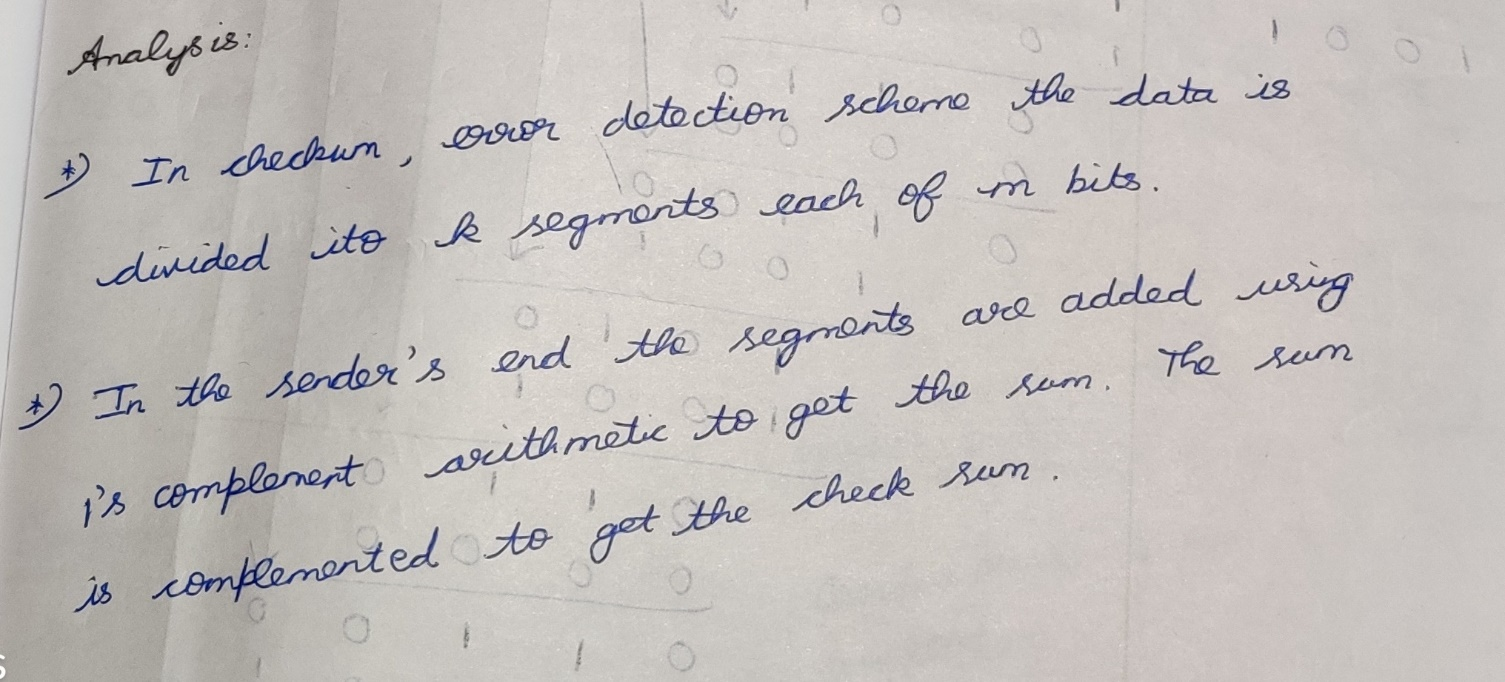 Analysis:
*) In checkum, error detection scheme the data is
divided ito k segments each of m bits.
*) In the sender's end the segments are added using
1's complement arithmetic to get the sum. The sum
is complemented to get the check sum.